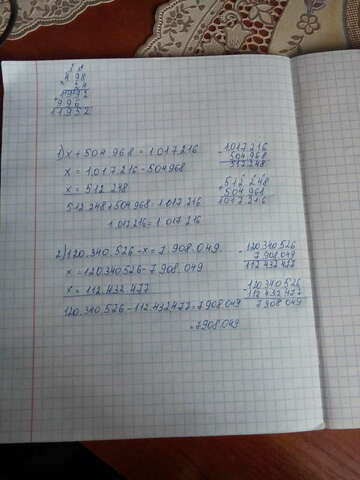 498
24
1992
996
11952
1) x + 504 968 = 1.017 216
x = 1.017 216 - 504 968
x = 512 248
512 248 + 504 968 = 1.017 216
1.017 216 = 1.017 216
- 1.017 216
504 968
512 248
+ 512 248
504 968
1017 216
2) 120.340.526 - x = 7 908.049.
x = 120.340.526 - 7 908.049
x = 112.432 477
120.340.526 - 112.432 477 = 7.908.049
= 7908.049
- 120.340.526
7 908.049
112 432 477
- 120.340.526
112 432 477
7 908 049